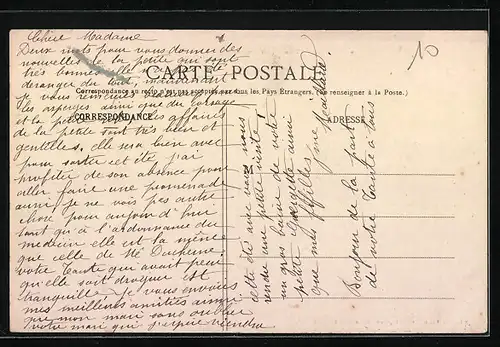 Chère Madame
Deux mots pour vous donner des
nouvelles de la petite qui sont
très bonnes elle
déranger du tout, maintenant
je vous remercie
les asperges ainsi que du corsage
et la les affaires
de la petite sont très bien et
gentilles, elle sera bien avec
pour sortir cet été par
profiter de son absence pour
aller faire une promenade
aussi je ne vois pas autre
chose pour aujourd'hui
tant qu'à l'ordonnance du
médecin elle est la même
que celle de Mr
votre Tante qui avait peur
qu'elle soit droguer est
tranquille. Je vous envoies
mes meilleures amitiés ainsi
que mon mari sans oublier
votre mari qui j'espère viendra
CARTE POSTALE
Correspondance au recto n'est pas acceptée par tous les Pays Étrangers. (Se renseigner à la Poste.)
CORRESPONDANCE
ADRESSE
cette été avec vous nous
rendre une petite visite,
un gros baiser de votre
petite aussi
que mes filles
Bonjour de la part
de votre Tante à tous
10